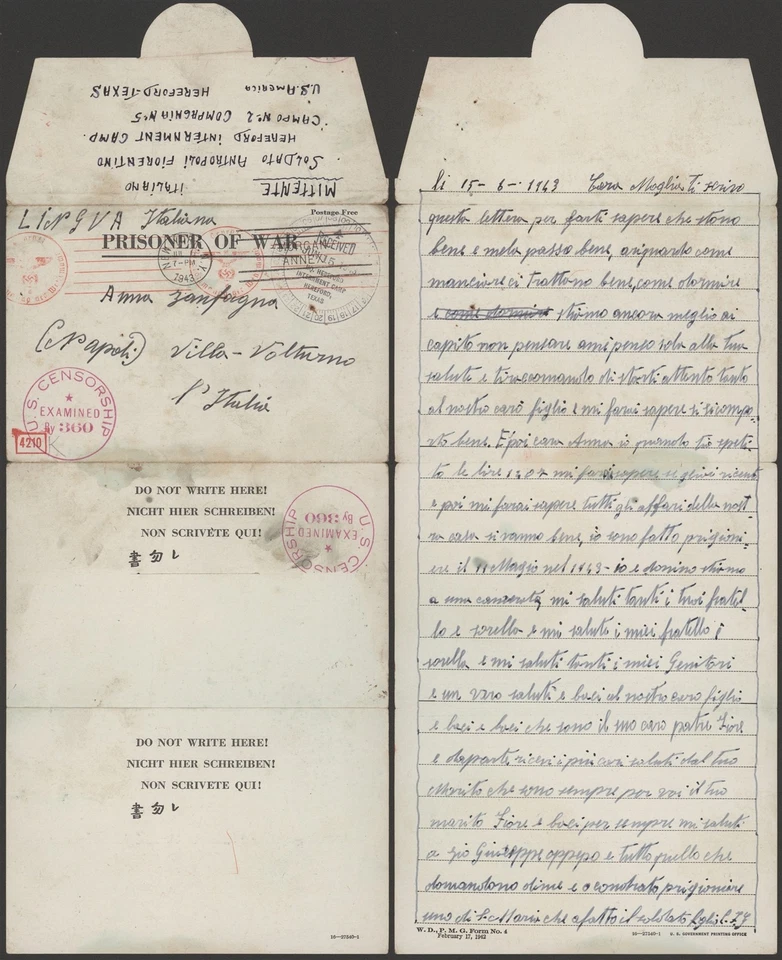 MITTENTE ITALIANO
SOLDATO ANTROPOLI FIORENTINO
HEREFORD INTERNMENT CAMP.
CAMPO Nº2 COMPAGNIA Nº5
U.S. America HEREFORD-TEXAS
LINGVA Italiana
Postage Free
PRISONER OF WAR
7-PM
1943
RECEIVED
INTERNMENT CAMP
HEREFORD,
TEXAS
Anna Zanfagna
(Napoli) Villa-Volturno
l'Italia
U.S. CENSORSHIP
EXAMINED
By 360
4210
DO NOT WRITE HERE!
NICHT HIER SCHREIBEN!
NON SCRIVETE QUI!
書勿レ
U.S. CENSORSHIP
EXAMINED
By 360
DO NOT WRITE HERE!
NICHT HIER SCHREIBEN!
NON SCRIVETE QUI!
書勿レ
16-27540-1
li 15-6-1943 Cara Moglia ti scrivo
questa lettera per farti sapere che stono
bene e mela passo bene, ariguardo come
manciare ci trattono bene, come dormire
e come dormire stiamo ancora meglio ai
capito non pensare ami penso solo alla tua
saluti e tiraccomando di storti attento tanto
al nostro caro figlio e mi farai sapere si sicompo
rto bene. E poi cara Anna io quando tio speti
to le lire mi farai sapere si
e poi mi farai sapere tutti gli affari della nost
ra casa si vanno bene, io sono fatto prigioni
ere il 11 Magio nel 1943- io e donino stiamo
a una mi saluti tanti i tuoi fratel
lo e sorella e mi saluti i miei fratello e
sorella e mi saluti tanti i miei Genitori
e un vero saluti e baci al nostro caro figlio
e baci e baci che sono il suo caro patre Fiore
e daparte ricevi i più cari saluti dal tuo
Marito che sono sempre per voi il tuo
marito Fiore e baci per sempre mi saluti
a zio Giuseppe e tutto quello che
domandono dime e o condrato prigioniere
uno di S. Maria che a fatto il soldato
W. D., P. M. G. Form No. 4
February 17, 1942
16-27540-1 U. S. GOVERNMENT PRINTING OFFICE